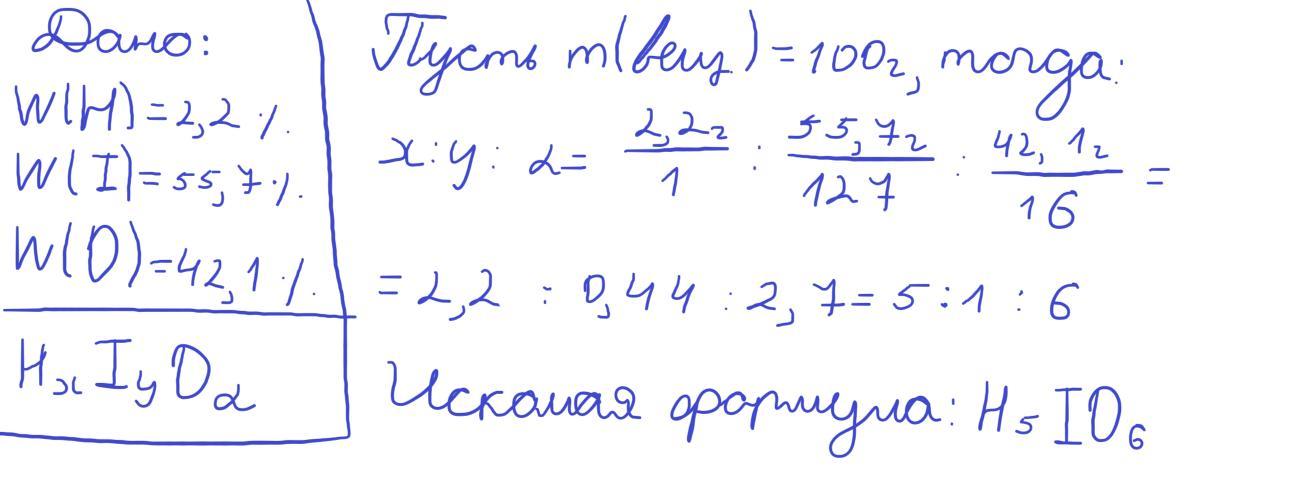 Дано:
W(H)=2,2%.
W(I)=55,7%.
W(O)=42,1%.
HxIyOα
Пусть m(вещ.)=100г, тогда:
x:y:α= 2,2г/1 : 55,7г/127 : 42,1г/16 =
=2,2 : 0,44 : 2,7=5:1:6
Искомая формула: H5IO6